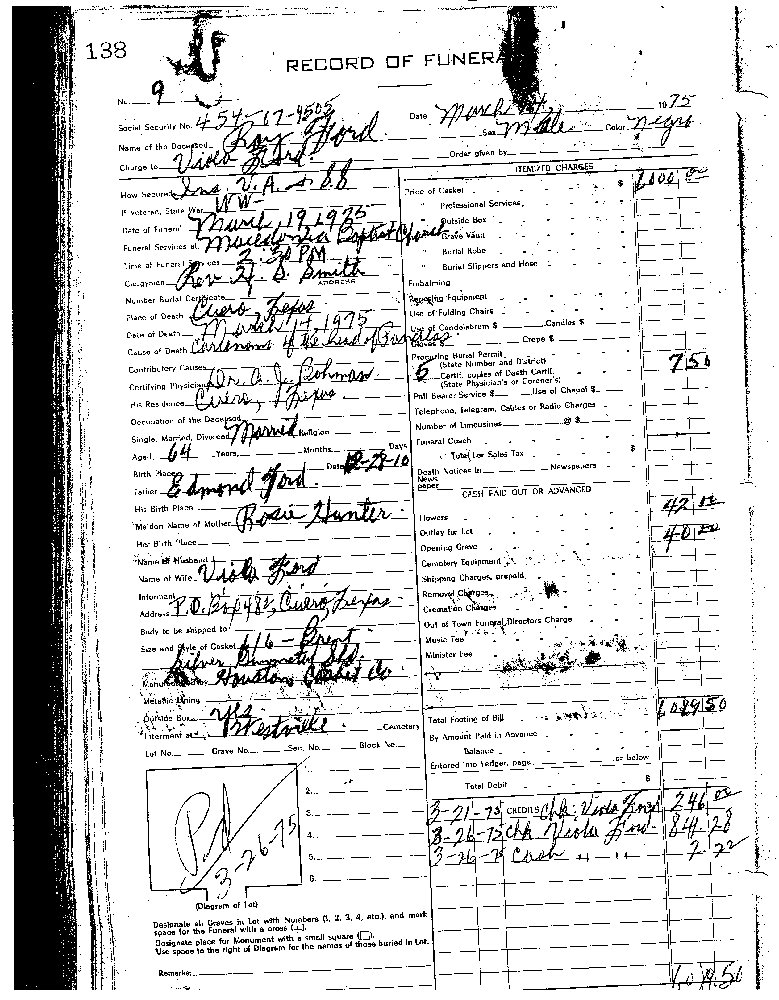 138
RECORD OF FUNERAL
No. 9
Social Security No. 454-17-4505 Date March 1975
Name of the Deceased Roy Ford Sex Male Color Negro
Charge to Viola Ford Order given by
How Secured Ins. V.A. + SS
If Veteran, State War WW-
Date of Funeral March, 19, 1975
Funeral Services at Macedonia Baptist Church
Time of Funeral Services 2:30 PM
Clergyman Rev. H. D. Smith
ADDRESS
Number Burial Certificate
Place of Death Cuero, Texas
Date of Death March 17, 1975
Cause of Death of the head of Pancreas
Contributory Causes
Certifying Physician Dr. A. J. Bohman
His Residence Cuero, Texas
Occupation of the Deceased
Single, Married, Divorced Married Religion
Aged 64 Years Months Days
Birth Place Date 12-28-10
Father Edmond Ford
His Birth Place
Maiden Name of Mother Rosie Hunter
Her Birth Place
Name of Husband
Name of Wife Viola Ford
Informant
Address P.O. Box 483, Cuero, Texas
Body to be shipped to
Size and Style of Casket 6/6 -
Silver, Std.
Manufactured by Houston Casket Co
Metallic Lining
Outside Box Yes
Interment at Westville Cemetery
Lot No. Grave No. Sec. No. Block No.
Pd
3-26-75
2.
3.
4.
5.
6.
(Diagram of Lot)
Designate all Graves in Lot with Numbers (1, 2, 3, 4, etc.), and mark
space for the Funeral with a cross (+).
Designate place for Monument with a small square (□).
Use space to the right of Diagram for the names of those buried in Lot.
Remarks
ITEMIZED CHARGES
Price of Casket $ 1000 00
" Professional Services
" Outside Box
" Grave Vault
" Burial Robe
" Burial Slippers and Hose
Embalming
Equipment
Use of Folding Chairs
Use of Candelabrum $ Candles $
Gloves $ Crepe $
Procuring Burial Permit
(State Number and District)
5 Certif. copies of Death Certif. 7 50
(State Physician's or Coroner's)
Pall Bearer Service $ Use of Chapel $
Telephone, Telegram, Cables or Radio Charges
Number of Limousines @ $
Funeral Coach
Total for Sales Tax $
Death Notices in Newspapers
News
paper
CASH PAID OUT OR ADVANCED
Flowers 42 00
Outlay for Lot 40 00
Opening Grave
Cemetery Equipment
Shipping Charges, prepaid
Removal Charges
Cremation Charges
Out of Town Funeral Directors Charge
Music Fee
Minister Fee
Total Footing of Bill 1089 50
By Amount Paid in Advance
Balance
Entered into Ledger, page or below
Total Debit $
3-21-75 CREDITS Chk. Viola Ford 246 00
3-26-75 Chk Viola Ford 841 28
3-26-75 Cash " " 2 22